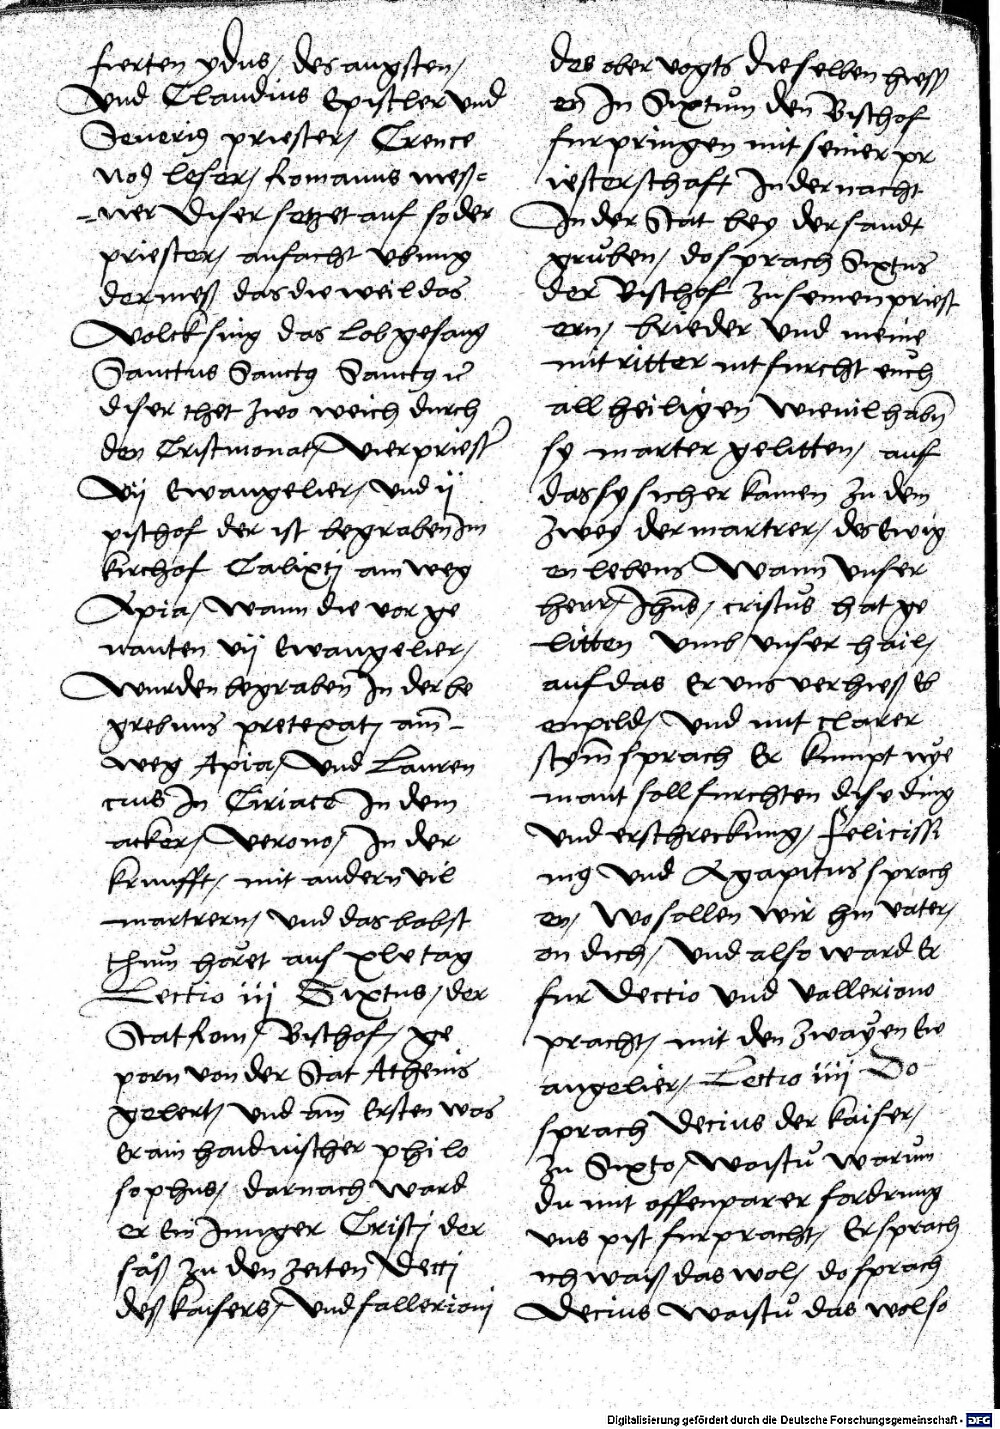 fierten ydus, des augsten,
Vnd Claudius Epistler vnd
Seuerig priester, Crence
nog leser, Romanus meß=
=ner Diser setzet auf so der
priester, anfacht vbung
der meß das die weil das
Volck sing das lobgesang
Sanctus Sanctg Sanctg ic
diser thet zwo weich durch
den Cristmonat, Vier priest
Vij Ewangelier, vnd ij
pischof der ist begraben Im
kirchof Calixtj am weg
Apia, Wann die vor ge
nanten vij Ewangelier,
Wurden begraben In der be
grebnus pretexatj am
weg Apia, Vnd Lauren
cius In Ciriace In dem
acker, Verono, In der
krufft, mit andern vil
martrern, vnd das babst
thum horet auf xle tag
Lectio iij Sixtus, der
Stat Rom, Bischof, ge
porn von der Stat Athenis
gelert, vnd am Ersten was
Er ain haidnischer philo
sophus, darnach ward
er Ein Junger Cristj der
saß zu den zeiten Decij
deß kaisers, Vnd fallerionj
des ober vogts dieselben hiess
en In Sixtum den Bischof
furpringen mit seiner pr
iesterschaft In der nacht
In der Stat bey der sandt
gruben, do sprach Sixtus
der Bischof zu seinen priest
ern, brieder vnd meine
mitritter nit furcht euch
all heiligen wieuil habn
sy marter gelitten, auf
das sy sicher kamen zu dem
zwey der martrer, des Ewig
en lebens Wann vnser
herr, Jhus, cristus hat ge
litten vmb vnser hail,
auf das Er vns verhieß Eb
enpeld, vnd mit clarer
stym sprach Er kumpt nye
mant soll furchten dise ding
vnd erschreckung, Felicissi
mg vnd Agapitus sproch
en, Wo sollen wir hin vater,
on dich, vnd also ward Er
fur Dectio vnd Valleriono
pracht, mit den zwayen Ew
angelier, Lectio iiij Do
sprach Decius der kaiser,
zu Sixto, Waistu warum
du mit offenparer fordrung
vns pist furpracht, Er sprach
ich waiß das wol, do sprach
Decius Waistu das wol so
Digitalisierung gefördert durch die Deutsche Forschungsgemeinschaft - DFG